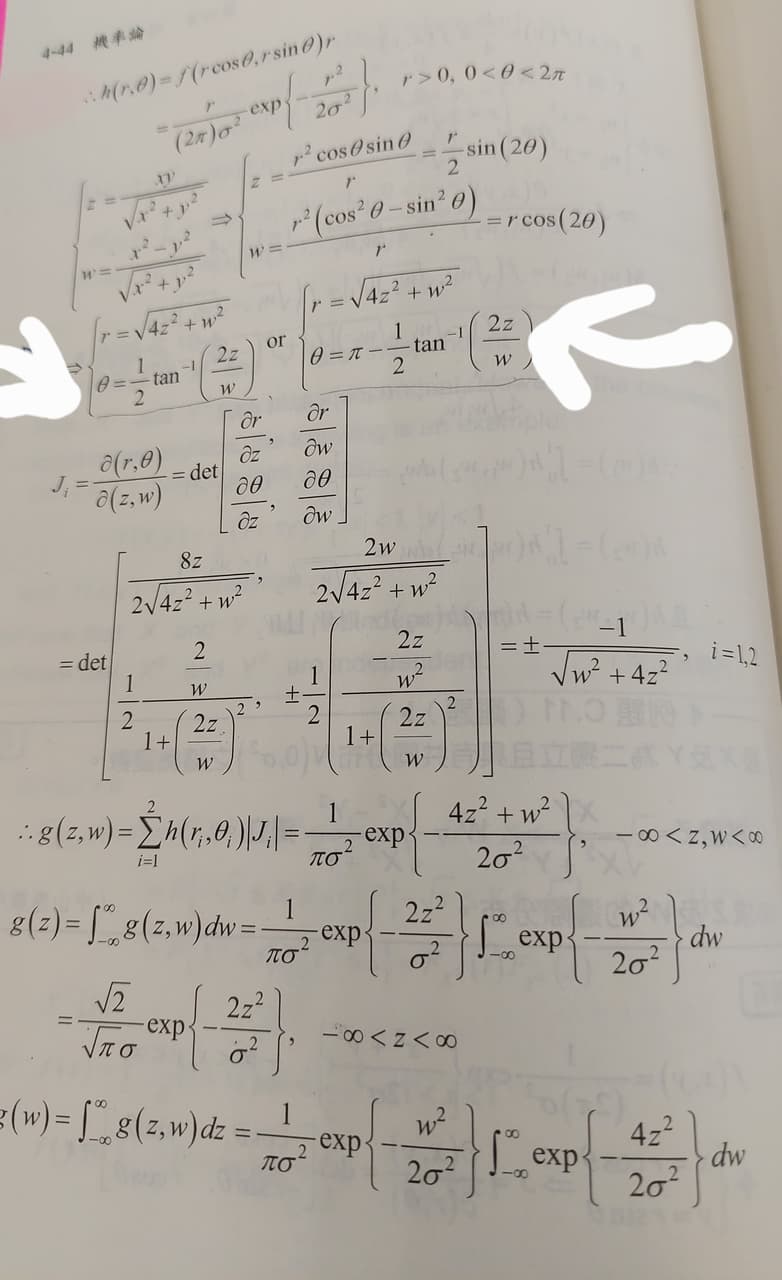 4-44 機率論
∴h(r,θ)=f(r cosθ, r sinθ)r
= \frac{r}{(2π)σ^2} exp{-\frac{r^2}{2σ^2}}, r>0, 0<θ<2π
{z = \frac{xy}{\sqrt{x^2+y^2}} ⇒ {z = \frac{r^2 cosθ sinθ}{r} = \frac{r}{2} sin(2θ)
{w = \frac{x^2-y^2}{\sqrt{x^2+y^2}} {w = \frac{r^2(cos^2θ-sin^2θ)}{r} = r cos(2θ)
⇒ {r = \sqrt{4z^2+w^2} or {r = \sqrt{4z^2+w^2}
{θ = \frac{1}{2} tan^{-1}(\frac{2z}{w}) {θ = π - \frac{1}{2} tan^{-1}(\frac{2z}{w})
J_i = \frac{∂(r,θ)}{∂(z,w)} = det[\frac{∂r}{∂z}, \frac{∂r}{∂w}; \frac{∂θ}{∂z}, \frac{∂θ}{∂w}]
= det[\frac{8z}{2\sqrt{4z^2+w^2}}, \frac{2w}{2\sqrt{4z^2+w^2}}; \frac{1}{2} \frac{\frac{2}{w}}{1+(\frac{2z}{w})^2}, ±\frac{1}{2}(\frac{-\frac{2z}{w^2}}{1+(\frac{2z}{w})^2})] = ±\frac{-1}{\sqrt{w^2+4z^2}}, i=1,2
∴g(z,w)=\sum_{i=1}^{2} h(r_i,θ_i)|J_i| = \frac{1}{πσ^2} exp{-\frac{4z^2+w^2}{2σ^2}}, -∞<z,w<∞
g(z)=∫_{-∞}^{∞} g(z,w)dw = \frac{1}{πσ^2} exp{-\frac{2z^2}{σ^2}} ∫_{-∞}^{∞} exp{-\frac{w^2}{2σ^2}} dw
= \frac{\sqrt{2}}{\sqrt{π}σ} exp{-\frac{2z^2}{σ^2}}, -∞<z<∞
g(w)=∫_{-∞}^{∞} g(z,w)dz = \frac{1}{πσ^2} exp{-\frac{w^2}{2σ^2}} ∫_{-∞}^{∞} exp{-\frac{4z^2}{2σ^2}} dw